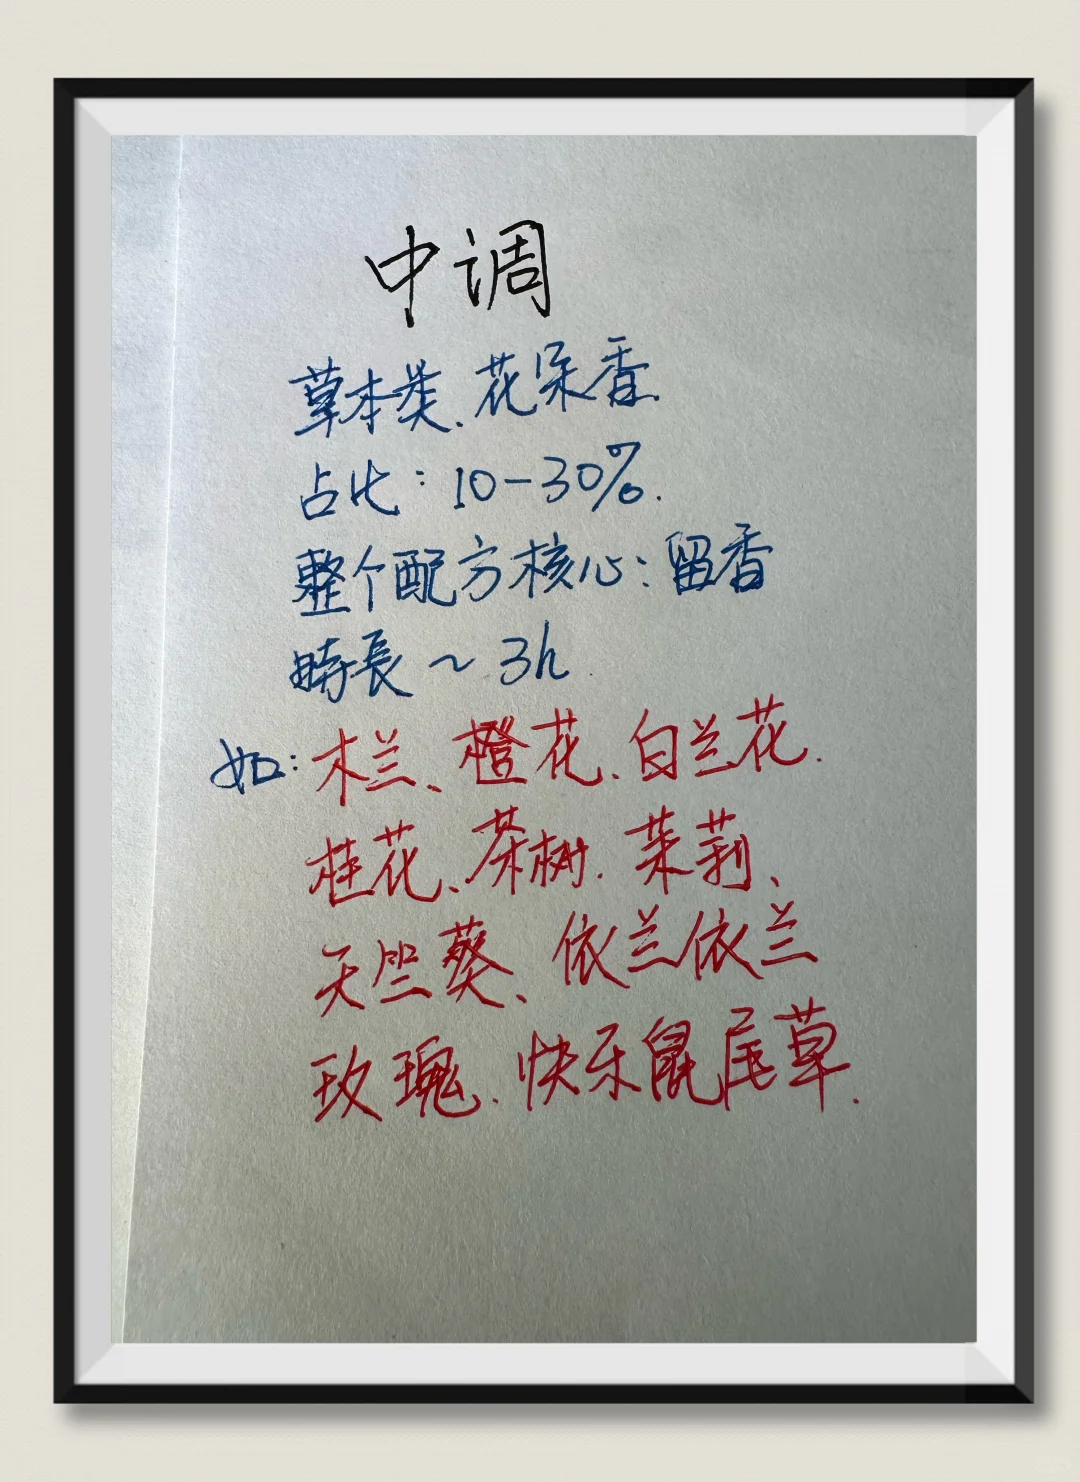 中调
草本类、花朵香.
占比：10-30%.
整个配方核心：留香
時長 ~ 3h.
如：木兰、橙花、白兰花.
桂花、茶树. 茉莉、
天竺葵、依兰依兰
玫瑰. 快乐鼠尾草.